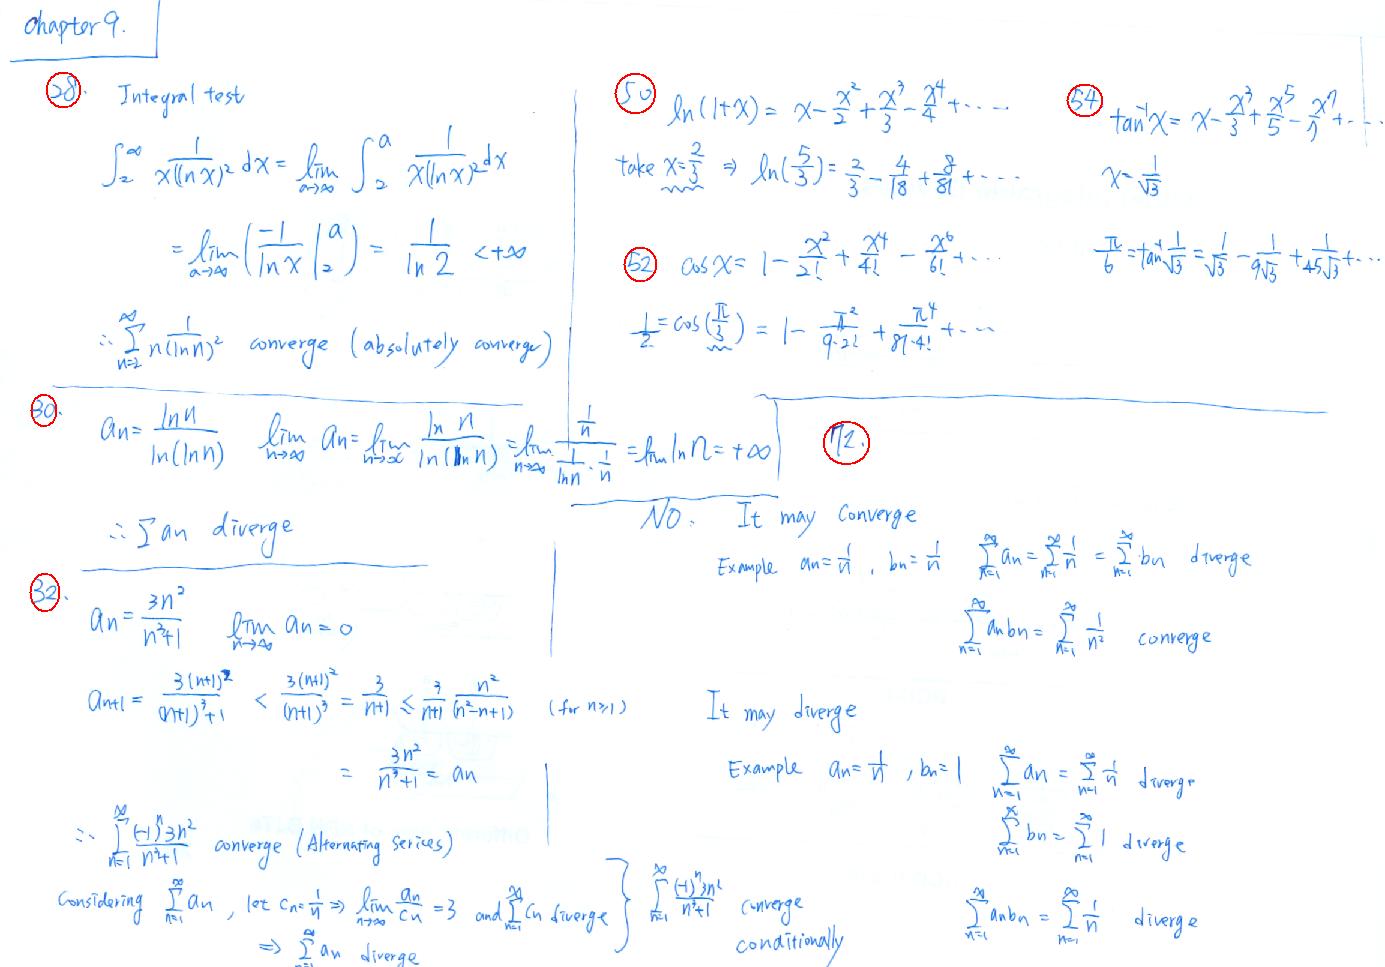 Chapter 9.
28. Integral test
∫₂^∞ 1/(x(ln x)²) dx = lim_{a→∞} ∫₂^a 1/(x(ln x)²) dx
= lim_{a→∞} (-1/ln x |₂^a) = 1/ln 2 < +∞
∴ Σ_{n=2}^∞ 1/(n(ln n)²) converge (absolutely converge)
30. an = ln n/ln(ln n) lim_{n→∞} an = lim_{n→∞} ln n/ln(ln n) = lim_{n→∞} (1/n)/(1/ln n · 1/n) = lim ln n = +∞
∴ Σ an diverge
32. an = 3n²/(n³+1) lim_{n→∞} an = 0
an+1 = 3(n+1)²/((n+1)³+1) < 3(n+1)²/(n+1)³ = 3/(n+1) ≤ 3/(n+1) n²/(n²-n+1) (for n≥1)
= 3n²/(n³+1) = an
∴ Σ_{n=1}^∞ (-1)ⁿ3n²/(n³+1) converge (Alternating series)
Considering Σ_{n=1}^∞ an, let cn = 1/n ⇒ lim_{n→∞} an/cn = 3 and Σ_{n=1}^∞ cn diverge } Σ_{n=1}^∞ (-1)ⁿ3n²/(n³+1) converge conditionally
⇒ Σ_{n=1}^∞ an diverge
50 ln(1+x) = x - x²/2 + x³/3 - x⁴/4 + ····
take x = 2/3 ⇒ ln(5/3) = 2/3 - 4/18 + 8/81 + ····
52 cos x = 1 - x²/2! + x⁴/4! - x⁶/6! + ···
1/2 = cos(π/3) = 1 - π²/(9·2!) + π⁴/(81·4!) + ···
54 tan⁻¹x = x - x³/3 + x⁵/5 - x⁷/7 + ···
x = 1/√3
π/6 = tan⁻¹ 1/√3 = 1/√3 - 1/(9√3) + 1/(45√3) + ···
72.
NO. It may converge
Example an = 1/n, bn = 1/n Σ_{n=1}^∞ an = Σ_{n=1}^∞ 1/n = Σ_{n=1}^∞ bn diverge
Σ_{n=1}^∞ anbn = Σ_{n=1}^∞ 1/n² converge
It may diverge
Example an = 1/n, bn = 1 Σ_{n=1}^∞ an = Σ_{n=1}^∞ 1/n diverge
Σ_{n=1}^∞ bn = Σ_{n=1}^∞ 1 diverge
Σ_{n=1}^∞ anbn = Σ_{n=1}^∞ 1/n diverge